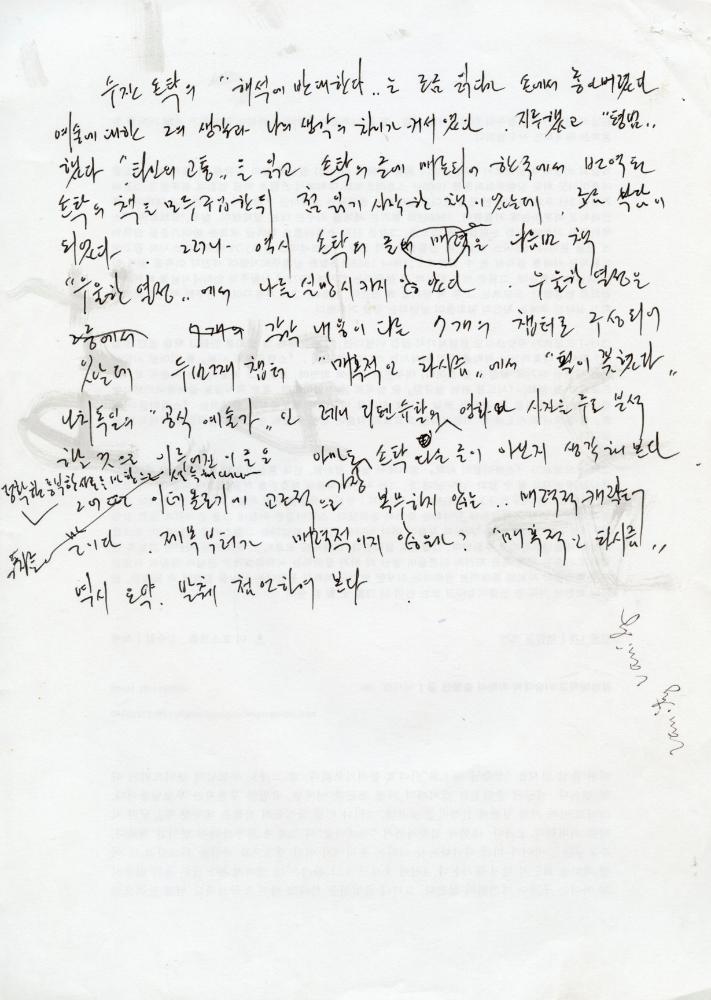 수잔 손탁의 "해석에 반대한다"는 조금 읽다가 손에서 놓아버렸다
예술에 대한 그의 생각과 나의 생각의 차이가 커서 였다. 지루했고 "평범"
했다 "타인의 고통"을 읽고 손탁의 글에 매료되어 한국에서 번역된
손탁의 책을 모두 구입한뒤 첨 읽기 시작한 책이 었는데 조금 부담이
되었다... 그러나 역시 손탁의 글의 매력은 다음번 책
"우울한 열정"에서 나를 실망시키지 않았다. 우울한 열정은
그중에서 7개의 각각 내용이 다른 7개의 챕터로 구성되어
있는데 두번째 챕터 "매혹적인 파시즘"에서 "필이 꽂혔다"
나치독일의 "공식 예술가"인 레니 리펜슈탈의 영화와 사진을 주로 분석
한 것으로 이루어진 이 글은 아마도 손탁 다운 글이 아닌지 생각해 본다
정확하고 풍부한 사료를
그 어떤 이데올로기에 고전적으로 가장 복무하지 않는.. 매력적 캐릭터
말이다. 제목부터가 매력적이지 않은가? "매혹적인 파시즘"
역시 요약. 발췌 첨언하여 본다